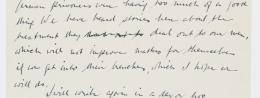 German prisoners were having too much of a good
thing. We have heard stories here about the
treatment they dealt out to our men,
which will not improve matters for themselves
if we get into their trenches, which I hope we
will do.
I will write again in a day or two